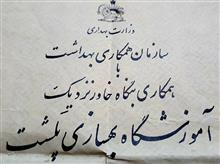 وزارت بهداری
سازمان همکاری بهداشت
با
همکاری بنگاه خاور نزدیک
آموزشگاه بهسازی پلشت